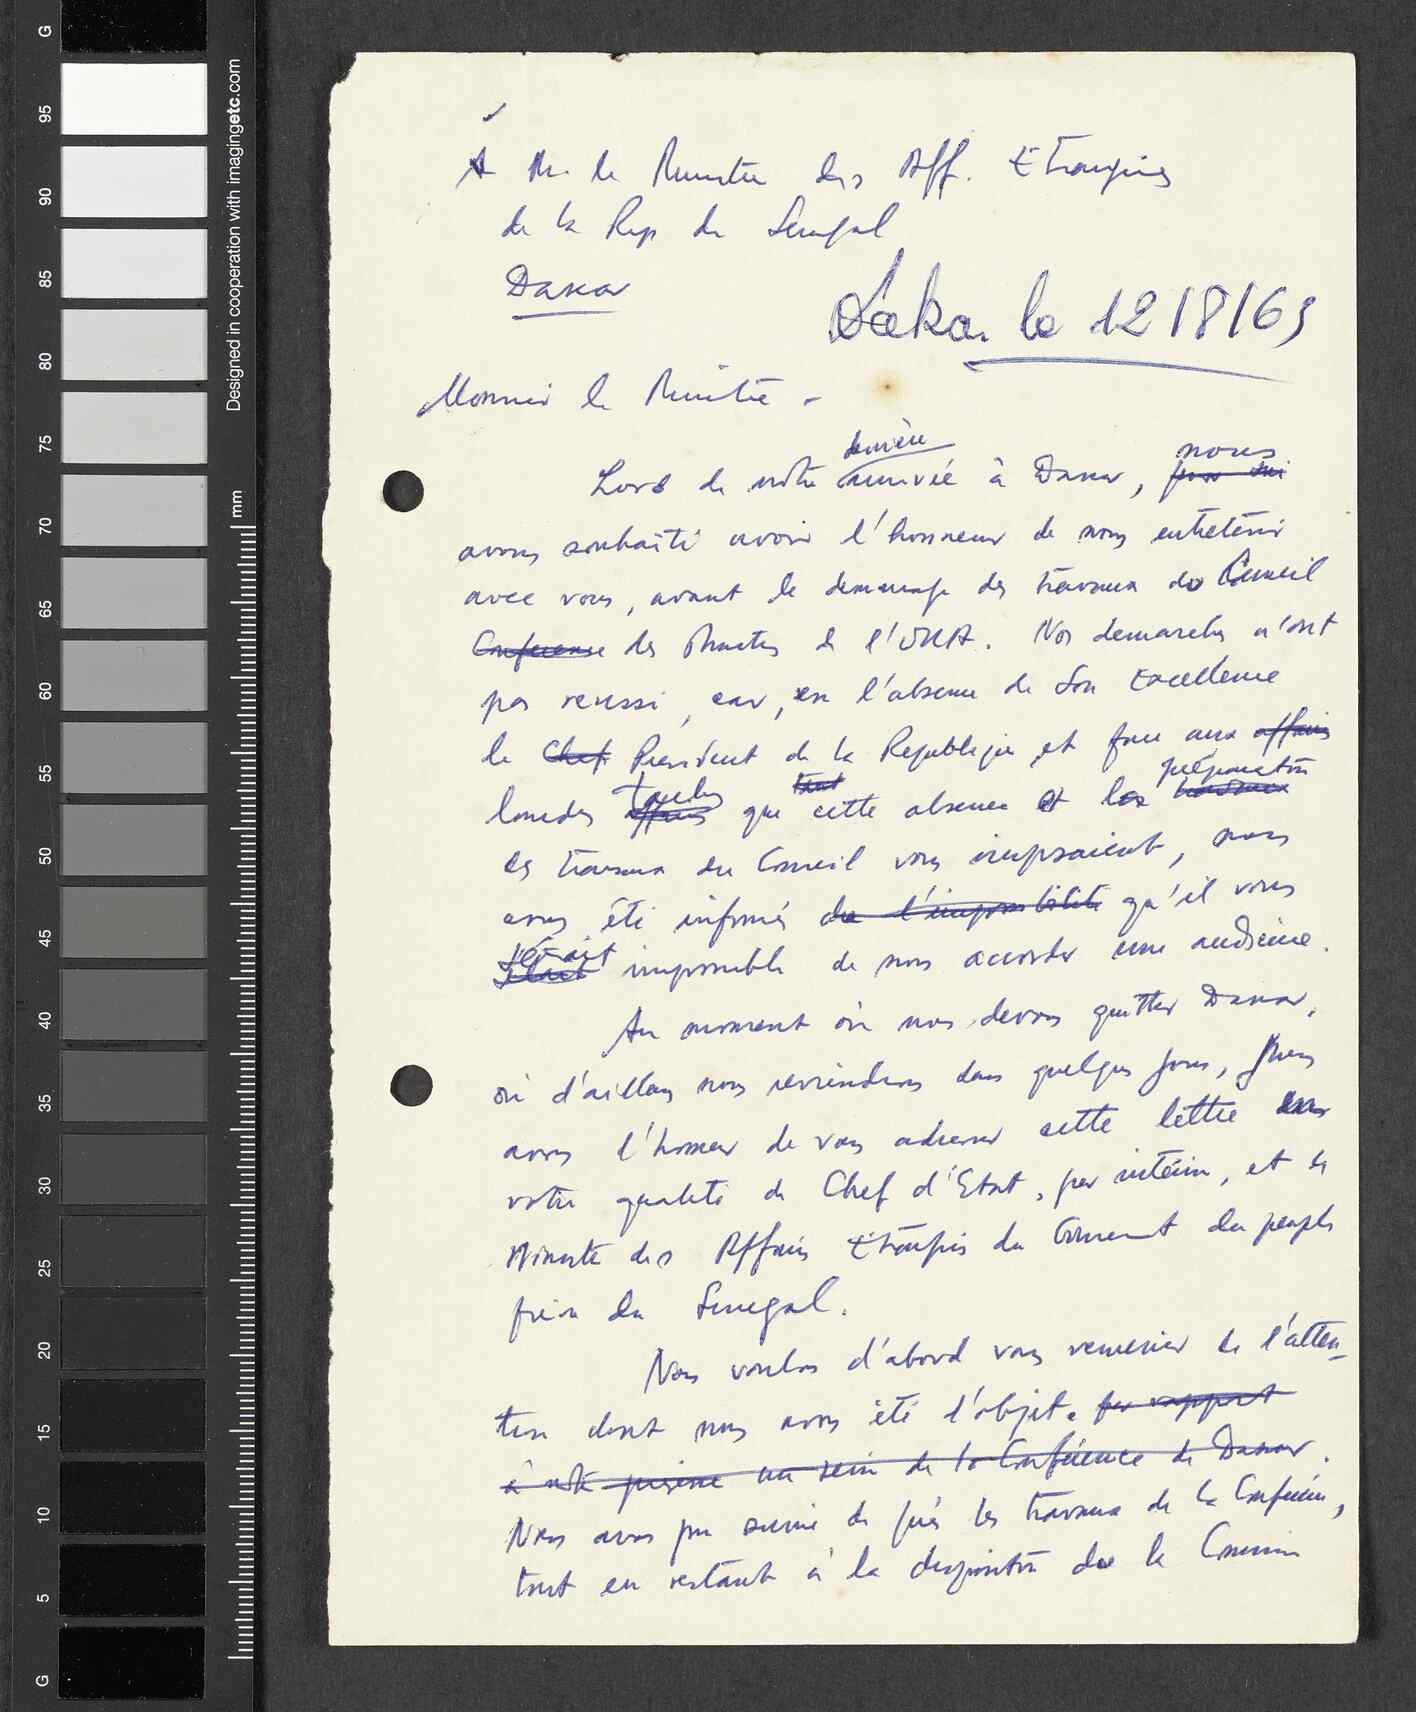 A M. le Ministre des Aff. Etrangères
de la Rep du Senegal
Dakar
Dakar le 12/8/63
Monsieur le Ministre -
dernière
Lors de notre arrivée à Dakar, nous
avons souhaité avoir l'honneur de nous entretenir
avec vous, avant le demarrage des travaux du Conseil
Conférence des Ministres de l'OUA. Nos demarches n'ont
pas reussi, car, en l'absence de Son Excellence
le Chef President de la Republique et face aux affaires
lourdes taches que cette absence et la préparation
des travaux du Conseil vous imposaient, nous
avons été informés de l'impossibilité qu'il vous
était impossible de nous accorder une audience.
Au moment où nous devons quitter Dakar,
où d'ailleurs nous reviendrons dans quelques jours, nous
avons l'honneur de vous adresser cette lettre
votre qualité de Chef d'Etat, par intérim, et de
Ministre des Affaires Etrangères du Gouvernement du peuple
frère du Senegal.
Nous voulons d'abord vous remercier de l'atten-
tion dont nous avons été l'objet. par rapport
à notre présence au sein de la Conférence de Dakar.
Nous avons pu suivre de près les travaux de la Conférence,
tout en restant à la disposition de la Commission